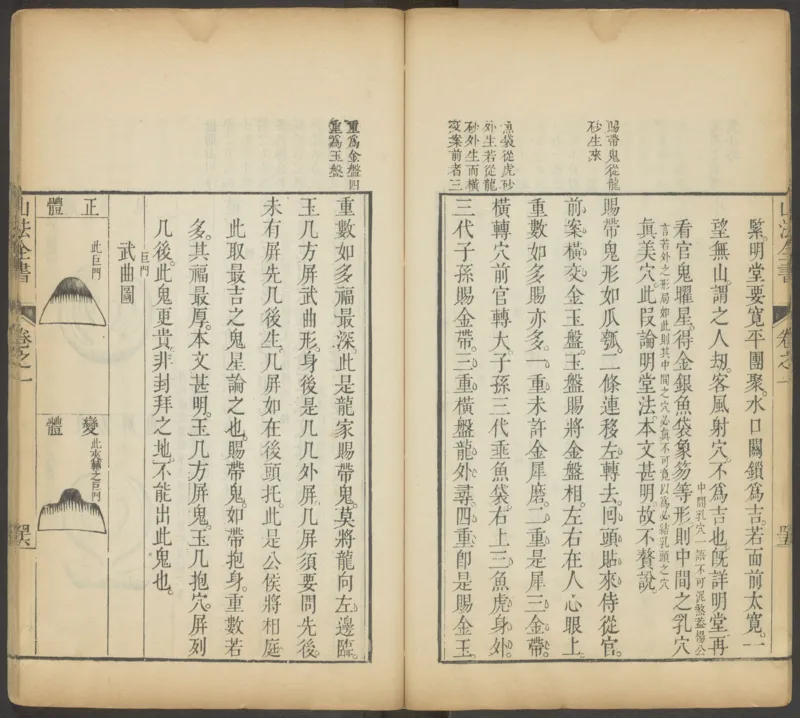 緊。明堂要寬平團聚。水口關鎖爲吉。若面前太寬。一
望無山。謂之人刧。客風射穴。不爲吉也。旣詳明堂。再
中間乳穴一語不可泥煞蓋楊公
看官鬼曜星。得金銀魚袋象笏等形。則中間之乳穴
言若外之形局如此則其中間之穴必眞不可寬以爲必結乳頭之穴
眞美穴。此叚論明堂法。本文甚明。故不贅說。
賜帶鬼從龍
砂生來
賜帶鬼形如瓜瓠。二條連移左轉去。回頭貼來侍從官。
前案橫交金玉盤。玉盤賜將金盤相。左右在人心眼上。
重數如多賜亦多。一重未許金犀磨。二重是犀三金帶。
魚袋從虎砂
外生若從龍
砂外生而橫
交案前者三
橫轉穴前官轉大。子孫三代垂魚袋。右上三魚虎身外。
三代子孫賜金帶。三重橫盤龍外尋。四重卽是賜金玉。
山法全書
卷之一
重爲金盤四
重爲玉盤
重數如多福最深。此是龍家賜帶鬼。莫將龍向左邊臨。
玉几方屏武曲形。身後是几几外屏。几屏須要問先後。
未有屏先几後生。几屏如在後頭托。此是公侯將相庭
此取最吉之鬼星論之也。賜帶鬼。如帶抱身。重數若
多。其福最厚。本文甚明。玉几方屏鬼。玉几抱穴。屏列
几後。此鬼更貴。非封拜之地。不能出此鬼也。
巨門
武曲圖
正體
此巨門
變體
此夾輔之巨門
山法全書
卷之一